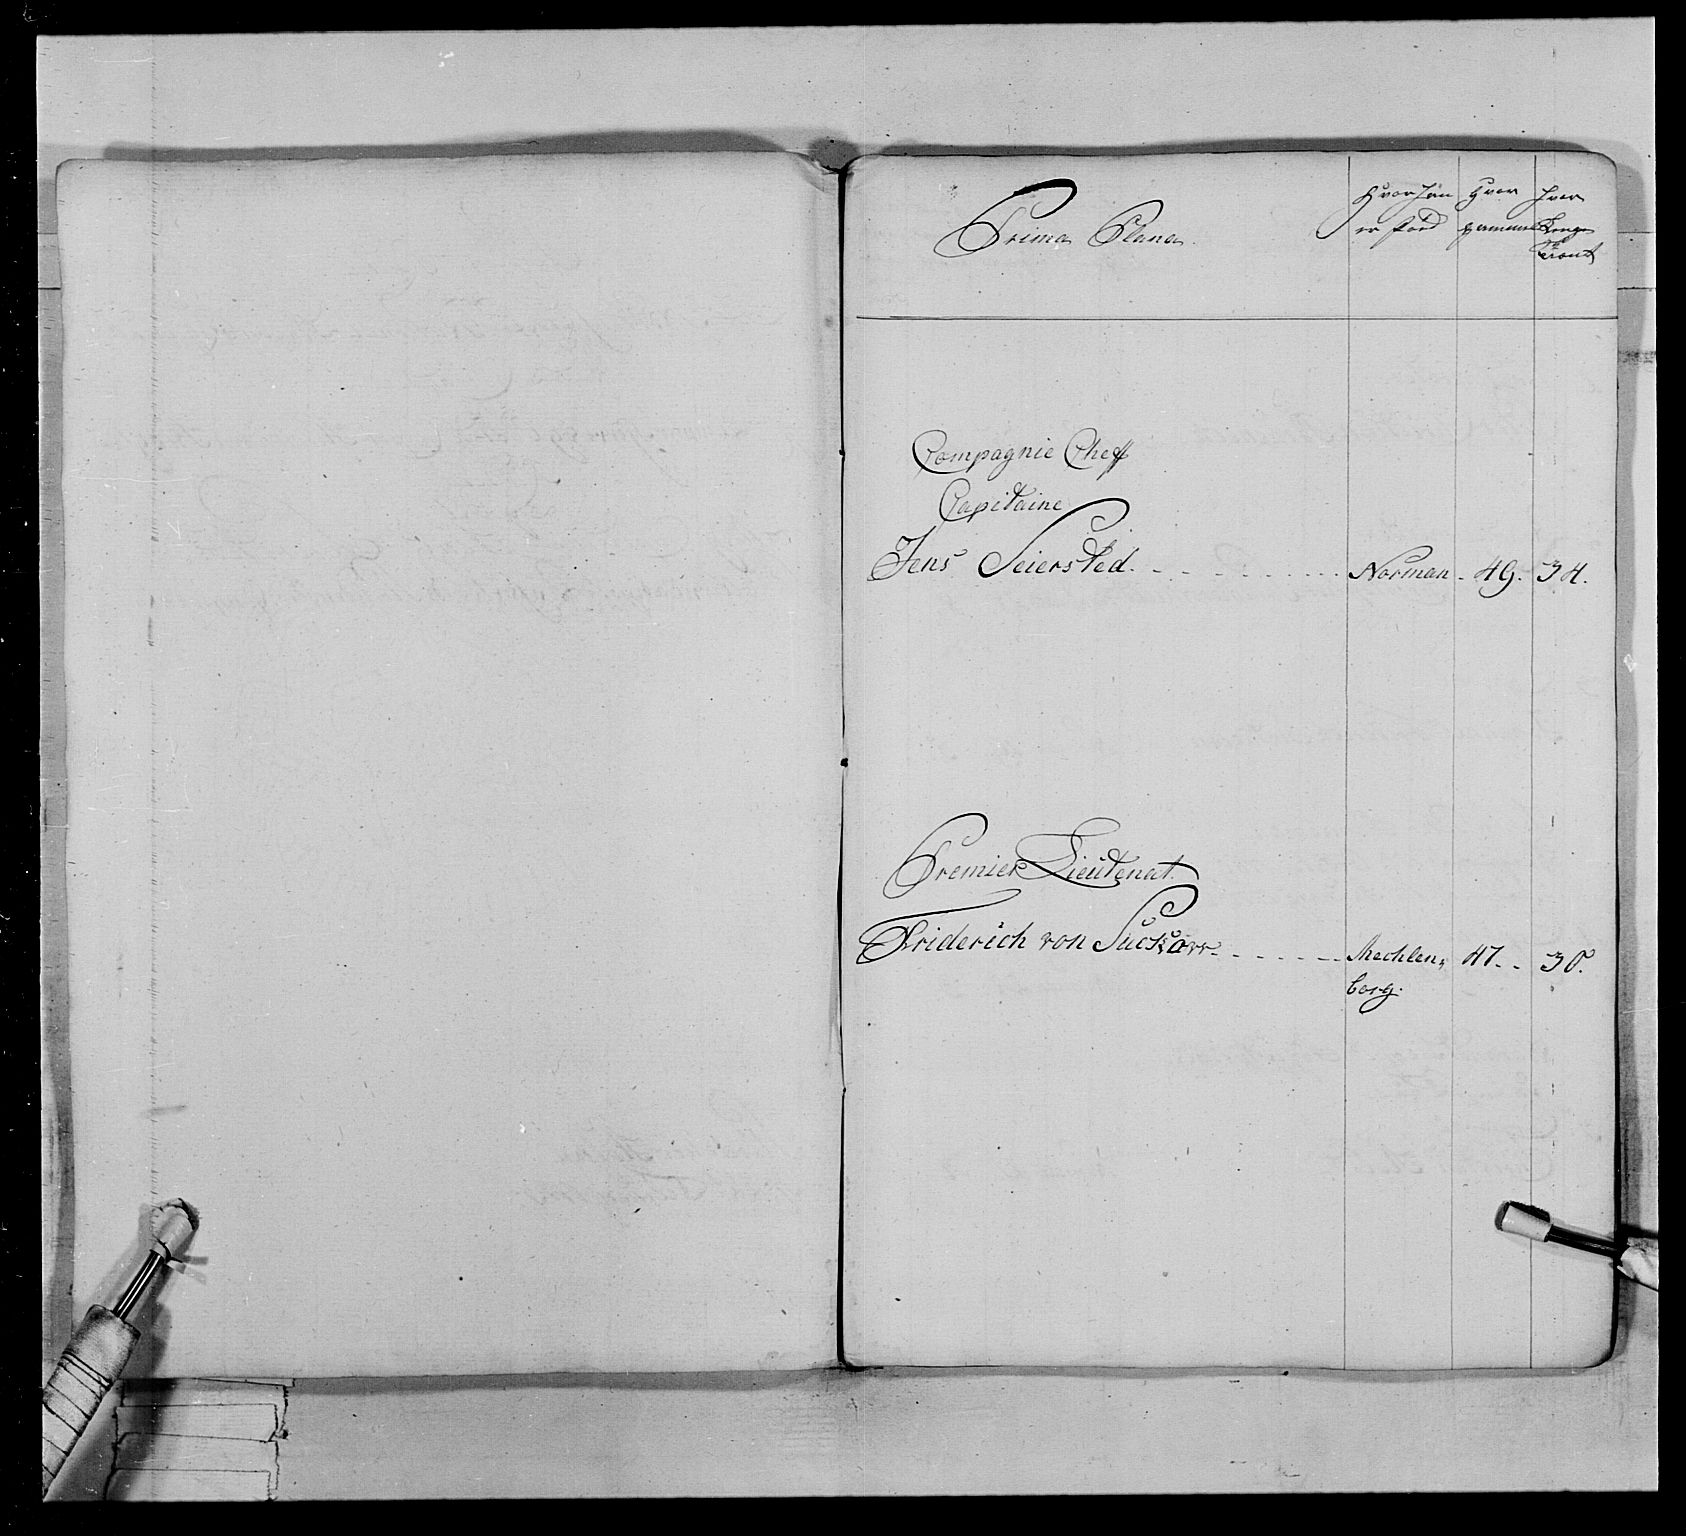 Prima Plana.
Hvor Han
er fød
Hvor
gammel
Hvor
Længe
tient
Compagnie Cheff
Capitaine
Jens Seiersted. Norman. 49. 34.
Premier Lieutenat.
Friderich von Suckow Mechlen,, 47. 30.
borg.